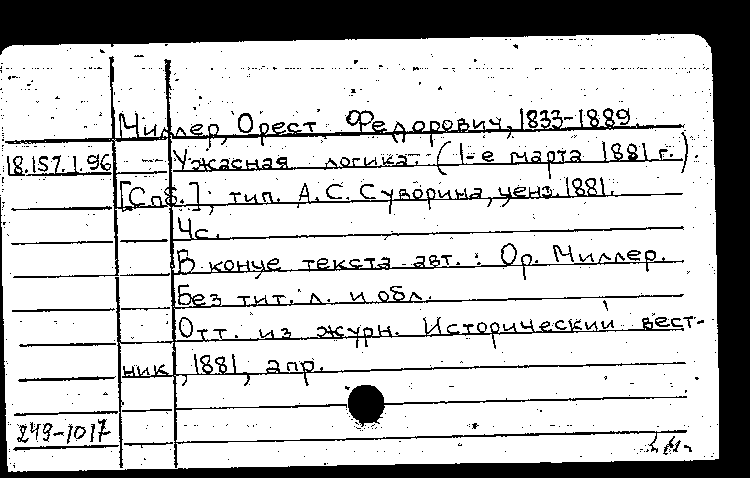 Миллер, Орест Федорович, 1833-1889.
18.157.1.96 — Ужасная логика. (1-е марта 1881 г.).
[Спб.]; тип. А.С. Суворина, ценз. 1881.
4с.
В конце текста авт.: Ор. Миллер.
Без тит. л. и обл.
Отт. из журн. Исторический вест-
ник, 1881, апр.
249-1017